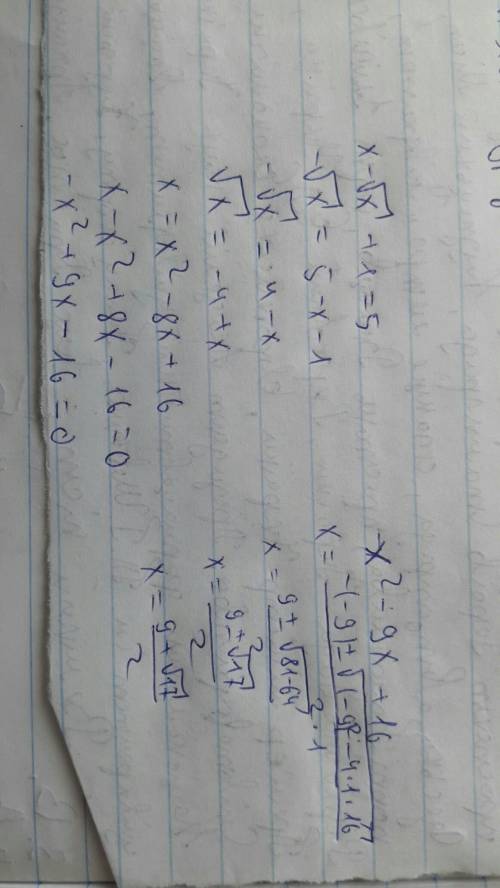 x-√x + 1 = 5
-√x = 5-x-1
-√x = 4-x
√x = -4+x
x = x²-8x+16
x-x²+8x-16=0
-x²+9x-16=0
x²-9x+16
x = -(-9)±√(-9)²-4·1·16 / 2·1
x = 9±√81-64 / 2
x = 9±√17 / 2
x = 9+√17 / 2